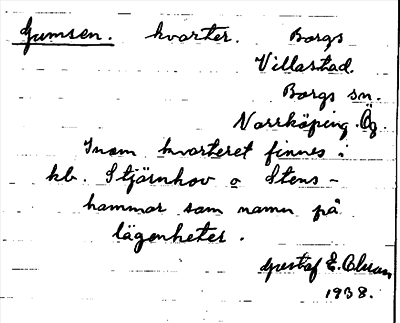 Gumsen. kvarter. Borgs
Villastad.
Borgs sn.
Norrköping. Ög.
Inom kvarteret finnes i
kb. Stjärnhov o Stens-
hammar som namn på
lägenheter.
Gustaf E. Olsson
1938.